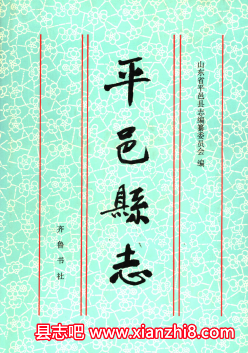 山东省平邑县志编纂委员会 编
平邑縣志
齐鲁书社
县志吧 www.xianzhi8.com